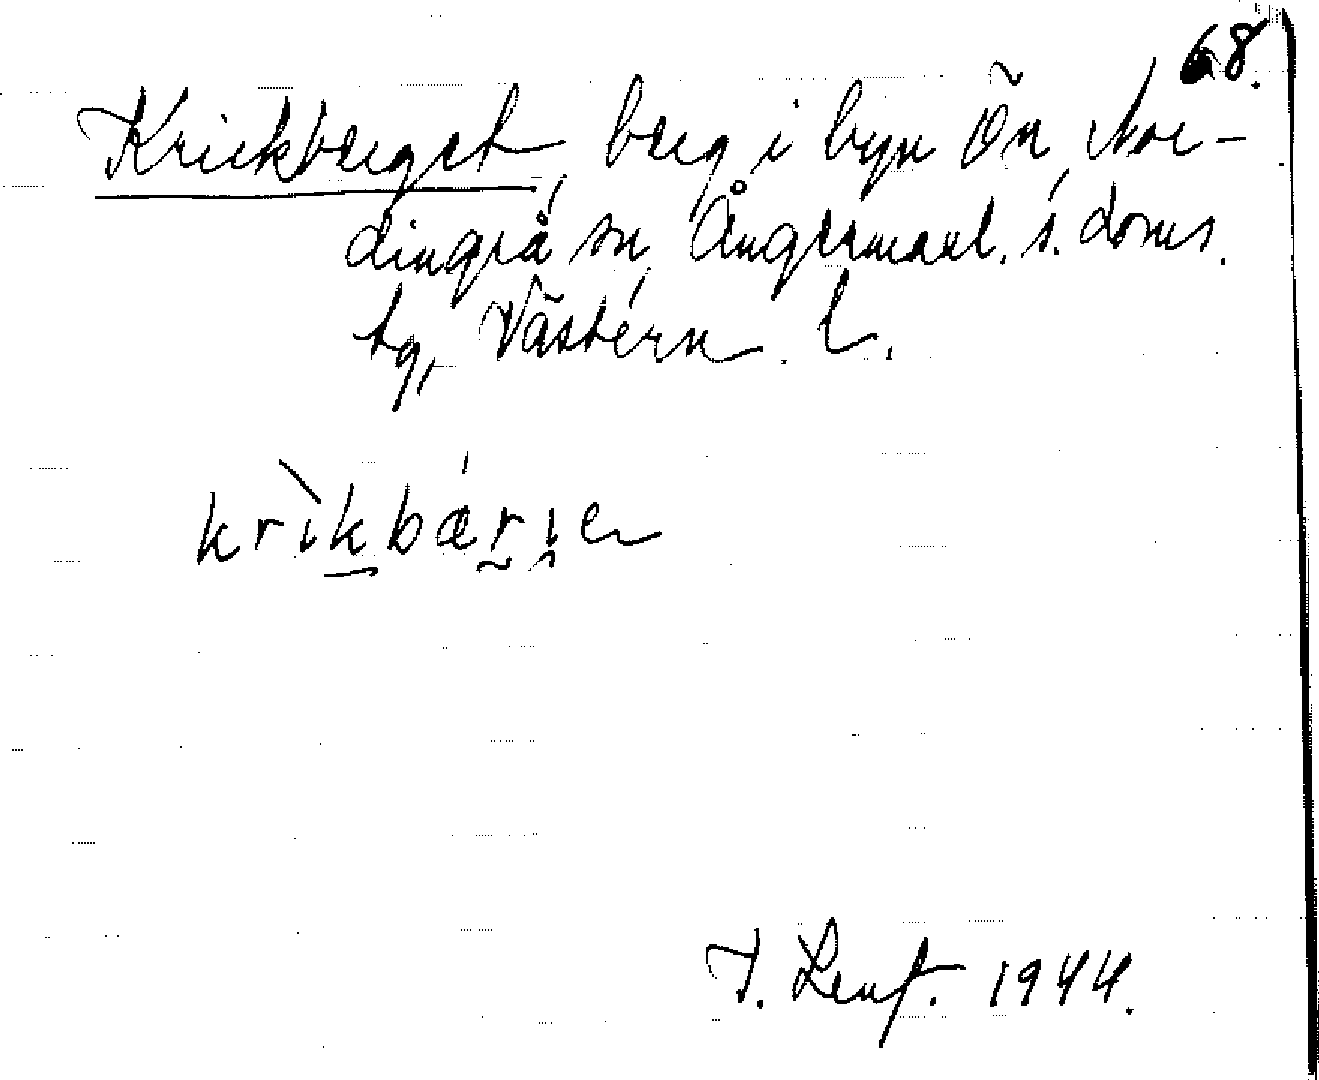 68.
Krickberget, berg i byn Ön, Nor-
dingrå sn, Ångermanl. s. doms.
tg, Västern. l.
krìkbǽrjen
T. Lenf. 1944.